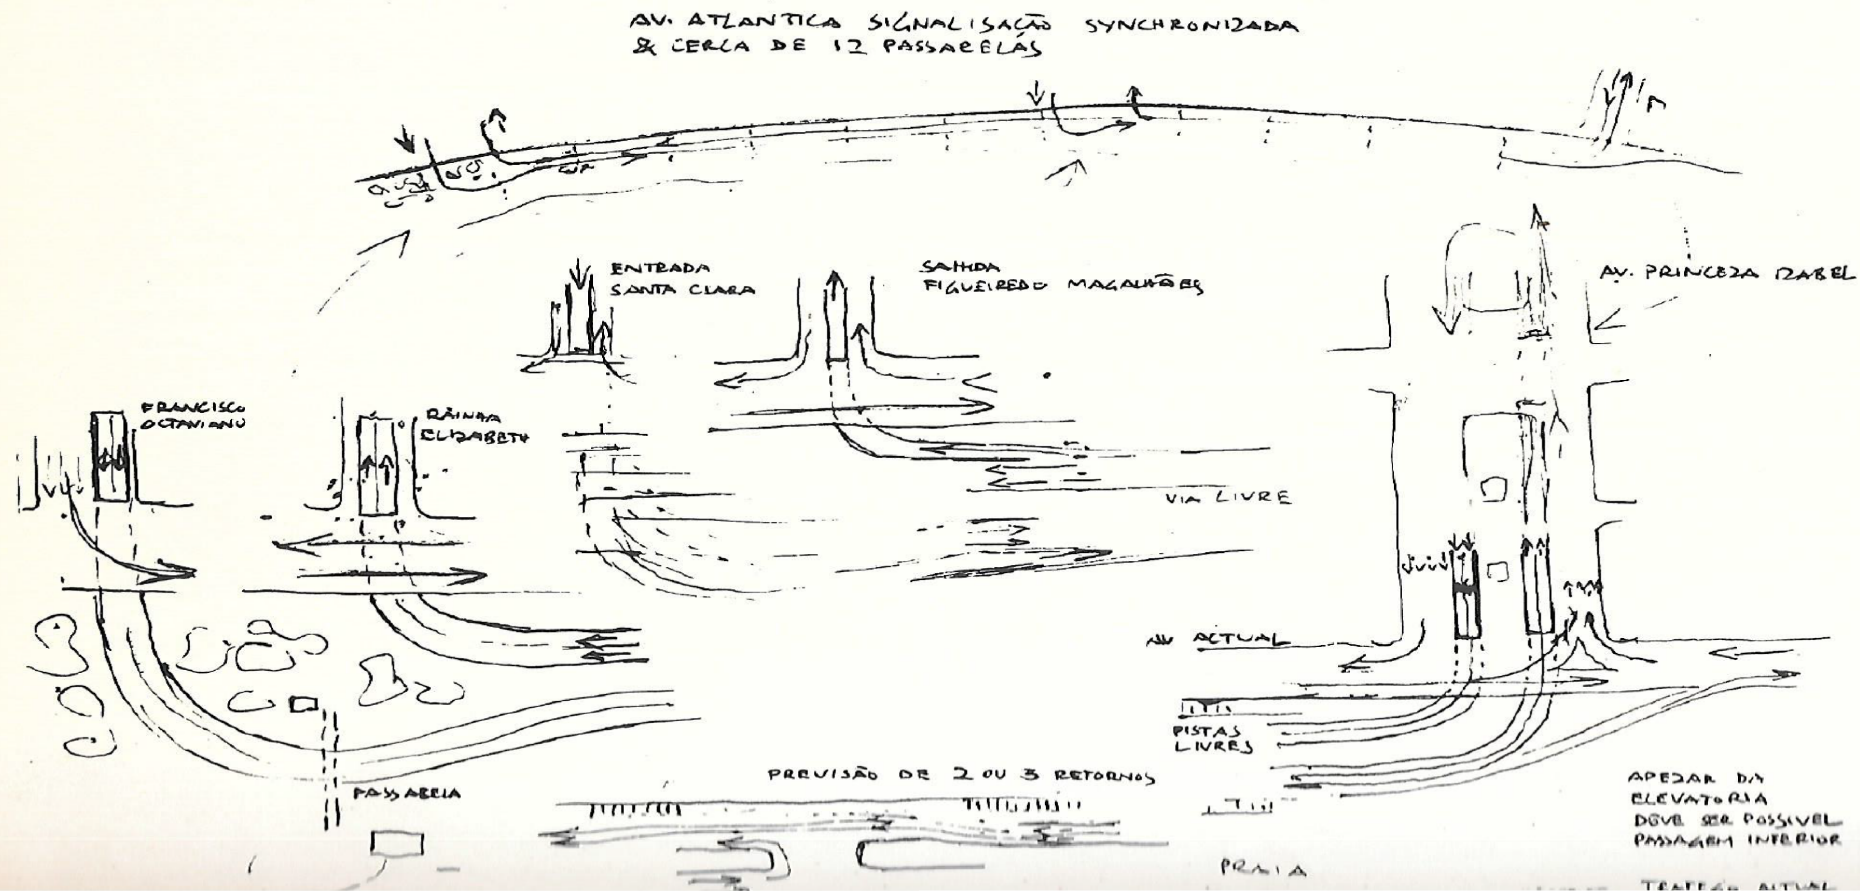 AV. ATLANTICA SIGNALISAÇÃO SYNCHRONIZADA
& CERCA DE 12 PASSARELAS
ENTRADA
SANTA CLARA
SAHIDA
FIGUEIREDO MAGALHÃES
AV. PRINCEZA IZABEL
FRANCISCO
OCTAVIANO
RAINHA
ELIZABETH
VIA LIVRE
AV ACTUAL
PISTAS
LIVRES
PREVISÃO DE 2 OU 3 RETORNOS
PASSARELA
APEZAR DA
ELEVATORIA
DEVE SER POSSIVEL
PASSAGEM INFERIOR
PRAIA
TRAFEGO ACTUAL